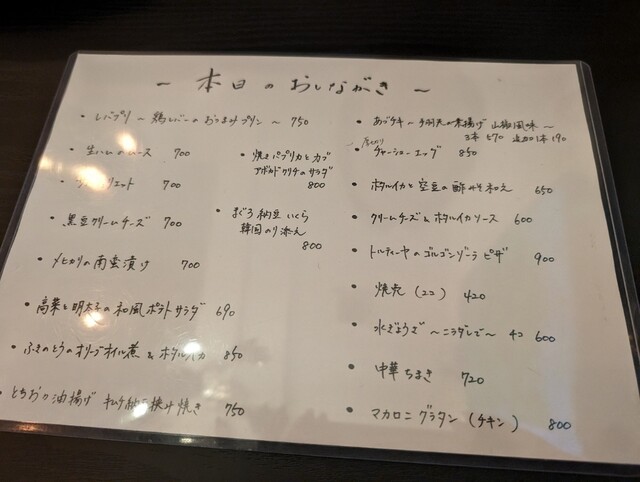 ～ 本日のおしながき ～
・レバプリ ～ 鶏レバーのおつまみプリン ～ 750
・生ハムのムース 700
・リエット 700
・黒豆クリームチーズ 700
・メヒカリの南蛮漬け 700
・高菜と明太子の和風ポテトサラダ 690
・ふきのとうのオリーブオイル煮 & ホタルイカ 850
・とちおの油揚げ キムチ納豆挟み焼き 750
・焼きパプリカとカブ
アボカドワサビのサラダ
800
・まぐろ納豆いくら
韓国のり添え
800
・あづチキ ～ 手羽先の素揚げ 山椒風味 ～
3本 570 追加1本 190
・厚切り チャーシューエッグ 850
・ホタルイカと空豆の酢みそ和え 650
・クリームチーズ & ホタルイカソース 600
・トルティーヤのゴルゴンゾーラピザ 900
・焼売 (2コ) 420
・水ぎょうざ ～ ニラダレで ～ 4コ 600
・中華ちまき 720
・マカロニグラタン (チキン) 800